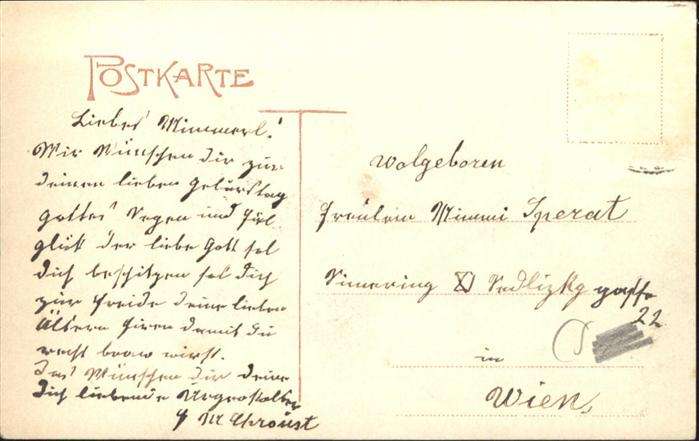 POSTKARTE
Liebes Mimmerl!
Wir Wünschen dir zum
deinen lieben Geburtstag
gottes Segen und
glück der liebe Gott sol
dich beschitzen sol dich
zur freide deine lieben
Ältern firen damit du
recht braw wirst.
Das Wünschen dir deine
dich liebende Urgrosältern
Wolgeboren
Freulein Mimmi Sperat
Simering XI Sedlizkygasse
22
in
Wien